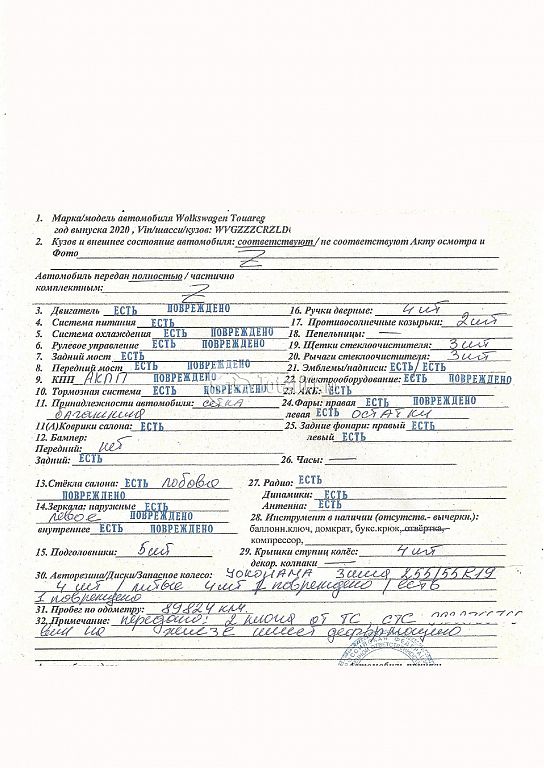 1. Марка/модель автомобиля Wolkswagen Touareg
год выпуска 2020 , Vin/шасси/кузов: WVGZZZCRZLD
2. Кузов и внешнее состояние автомобиля: соответствуют / не соответствуют Акту осмотра и
Фото Z
Автомобиль передан полностью / частично
комплектным: Z
3. Двигатель ЕСТЬ ПОВРЕЖДЕНО 16. Ручки дверные: 4 шт
4. Система питания ЕСТЬ 17. Противосолнечные козырьки: 2 шт
5. Система охлаждения ЕСТЬ ПОВРЕЖДЕНО 18. Пепельницы: —
6. Рулевое управление ЕСТЬ ПОВРЕЖДЕНО 19. Щетки стеклоочистителя: 3 шт
7. Задний мост ЕСТЬ 20. Рычаги стеклоочистителя: 3 шт
8. Передний мост ЕСТЬ ПОВРЕЖДЕНО 21. Эмблемы/надписи: ЕСТЬ/ ЕСТЬ
9. КПП АКПП ПОВРЕЖДЕНО 22. Электрооборудование: ЕСТЬ
10. Тормозная система ЕСТЬ ПОВРЕЖДЕНО 23. АКБ: ЕСТЬ
11. Принадлежности автомобиля: сетка 24.Фары: правая ЕСТЬ ПОВРЕЖДЕНО
багажника левая ЕСТЬ остатки
11(А)Коврики салона: ЕСТЬ 25. Задние фонари: правый ЕСТЬ
12. Бампер: левый ЕСТЬ
Передний: нет
Задний: ЕСТЬ 26. Часы: —
13.Стёкла салона: ЕСТЬ лобовое 27. Радио: ЕСТЬ
ПОВРЕЖДЕНО Динамики: ЕСТЬ
14.Зеркала: наружные ЕСТЬ Антенна: ЕСТЬ
левое ПОВРЕЖДЕНО 28. Инструмент в наличии (отсутств.- вычерки.):
внутреннее ЕСТЬ ПОВРЕЖДЕНО баллонн.ключ, домкрат, букс.крюк, отвёртка,
компрессор,
15. Подголовники: 5 шт 29. Крышки ступиц колёс: 4 шт
декор. колпаки —
30. Авторезина/Диски/Запасное колесо: YOKOHAMA зима 255/55 R19
4 шт / литые 4 шт 1 повреждено / есть
1 повреждено
31. Пробег по одометру: 89824 км.
32. Примечание: передано: 2 ключа от ТС, СТС
вин на имеет деформацию